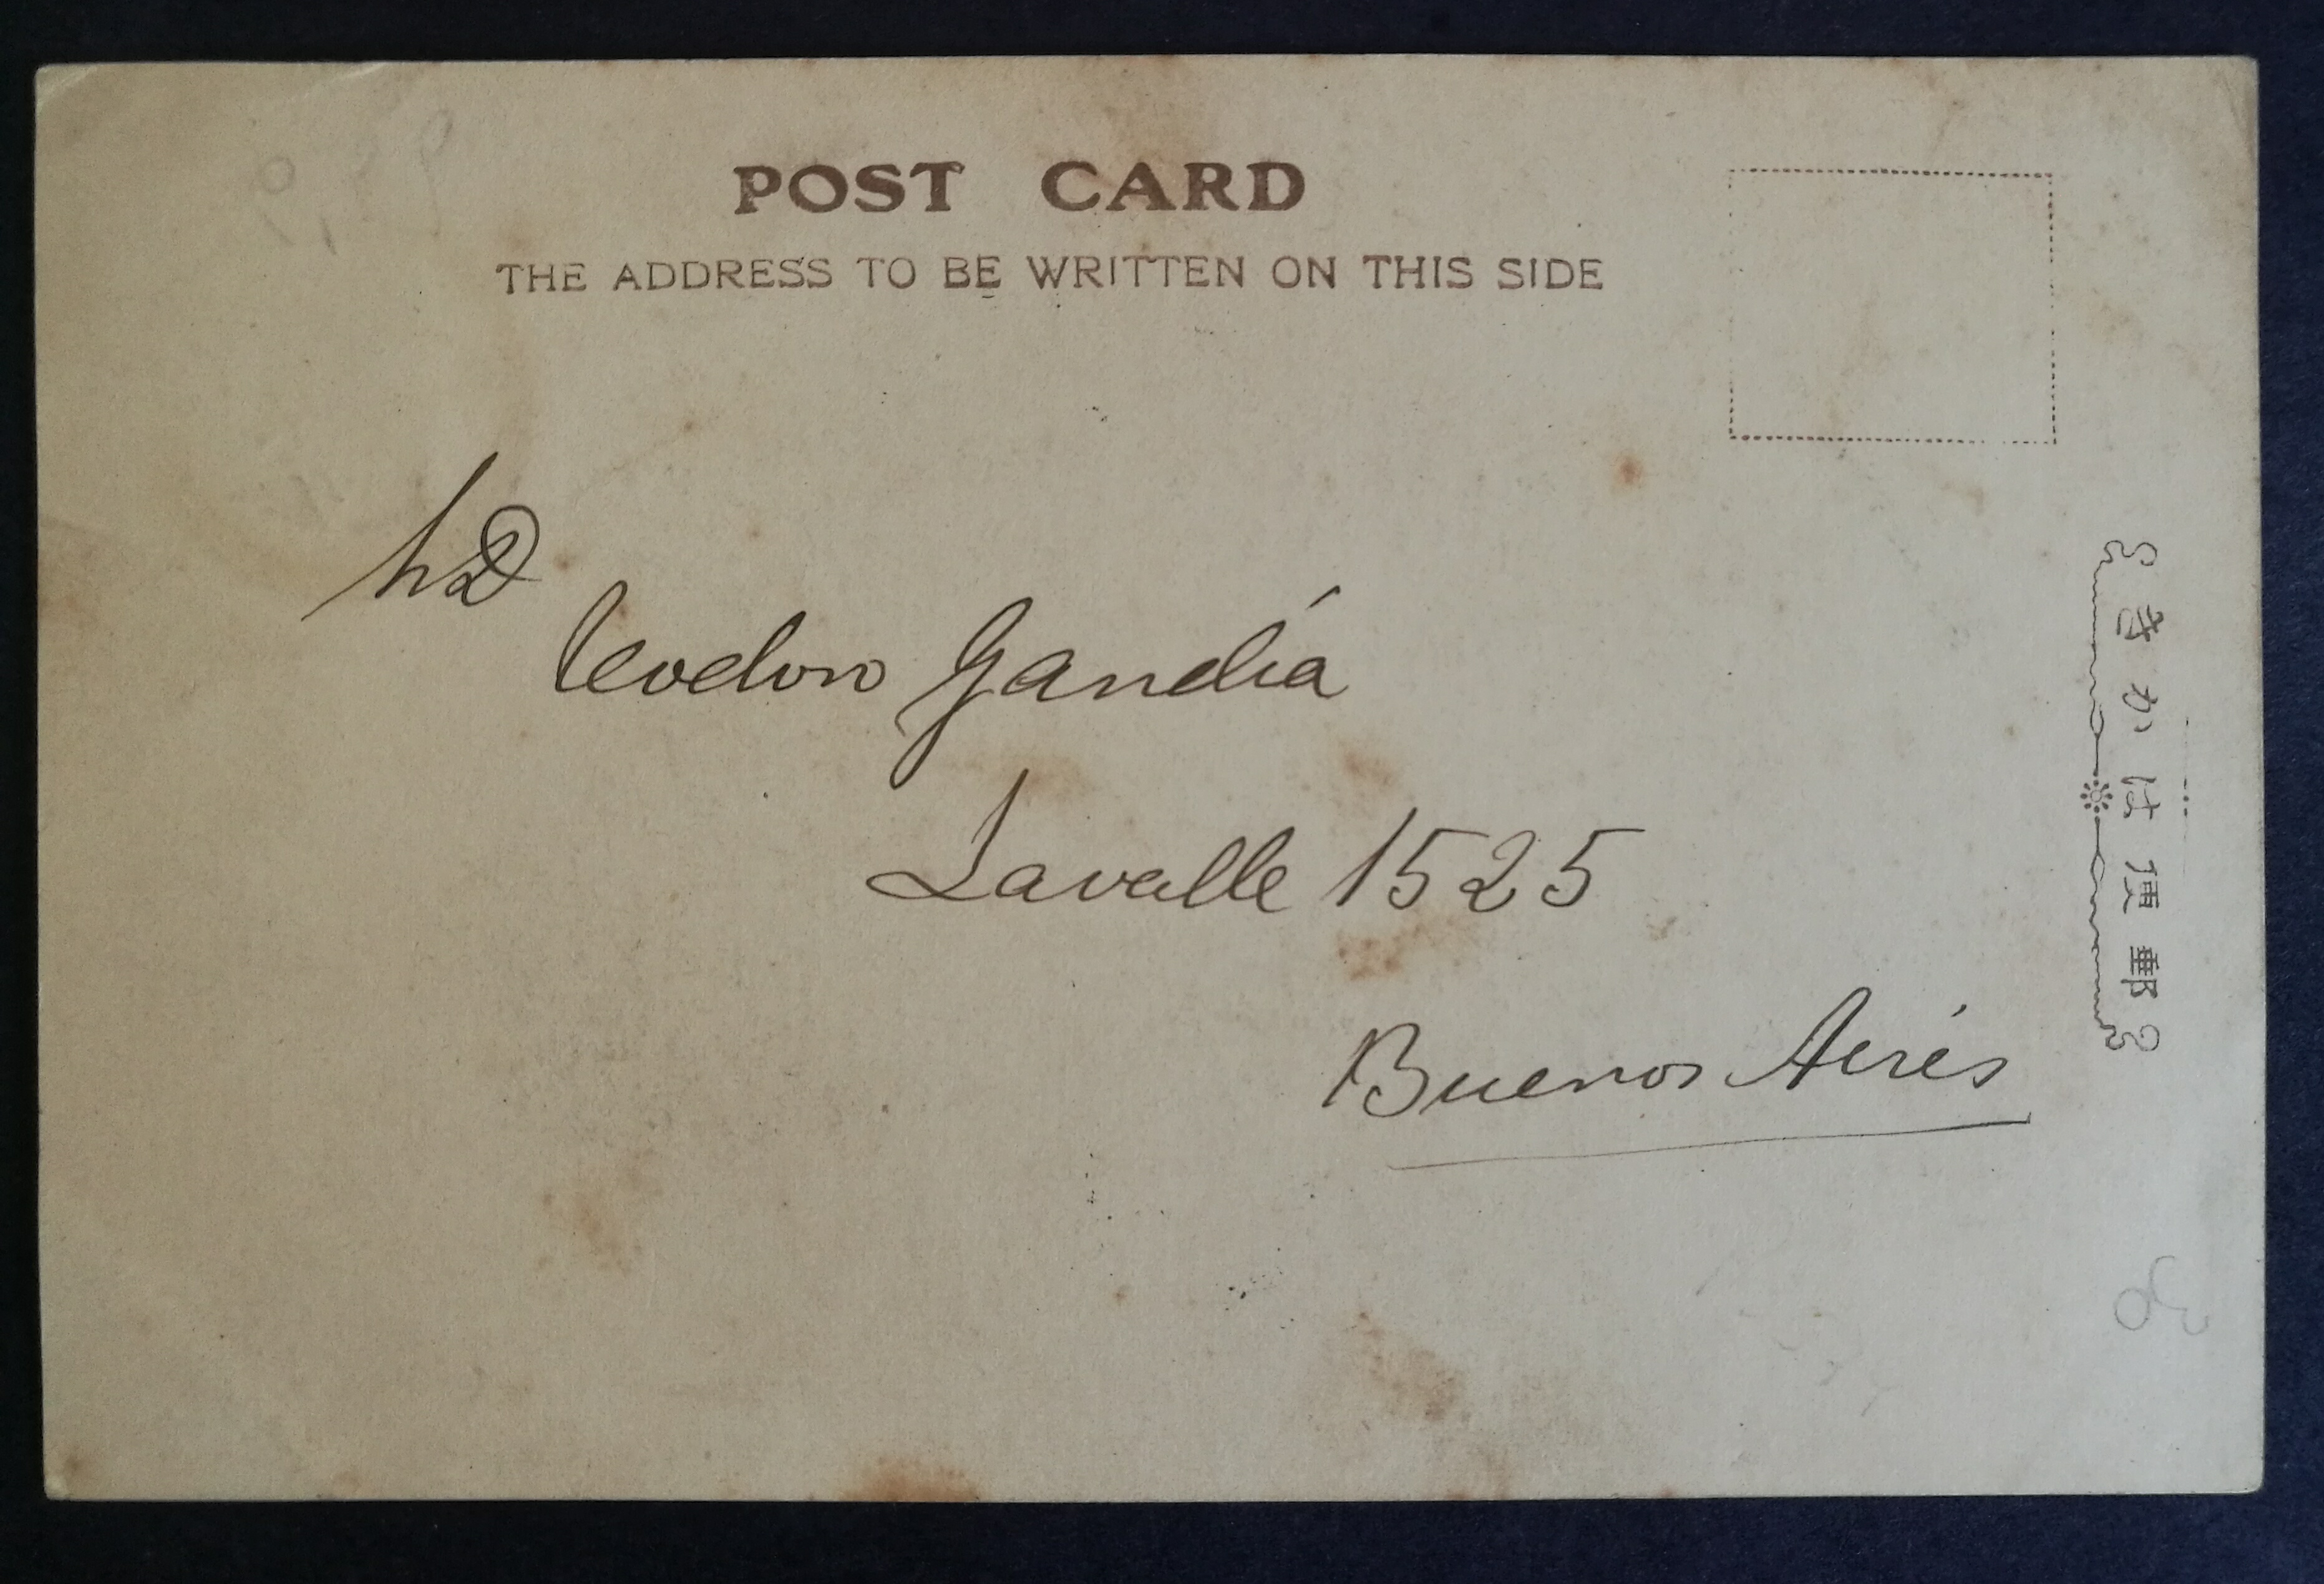 POST CARD
THE ADDRESS TO BE WRITTEN ON THIS SIDE
Teodoro Gandía
Lavalle 1525
Buenos Aires
きかは便郵